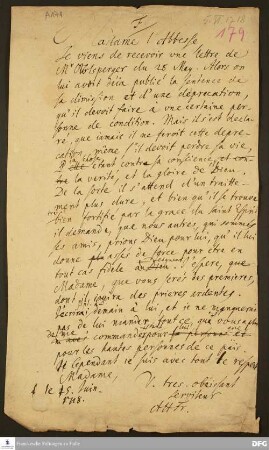 A 144
5. VI 1718
179
Madame l'Abbesse
Je viens de recevoir une lettre de
Mr Urlsperger du 28 May. Alors on
lui avoit deja publié la sentence de
sa dimission et d'une deprecation,
qu'il devoit faire à une certaine per-
sonne de condition. Mais il s'est decla-
ré, que jamais il ne feroit cette depre-
cation, même s'il devoit perdre sa vie,
la chose étant contre sa conscience, et con-
tre la verité, et la gloire de Dieu.
De la sorte il s'attend d'un traitte-
ment plus dure, et bien qu'il se trouve
bien fortifié par la grace du Saint Esprit
il demande, que nous autres, qui sommes
ses amis, prions Dieu pour lui, qu'il lui
donne assés de force pour être en
tout cas fidele J'espere, que
Madame, que vous serés des premieres,
dont il jouira des prieres ardentes.
J'écrirai demain à lui, et je ne manquerai
pas de lui
commandes pour
pour les hautes personnes de ce païs
Cependant je suis avec tout le respect
Madame,
V. tres obeissant
serviteur
AHFr.
le 5. Juin.
1718.
Franckesche Stiftungen zu Halle
DFG